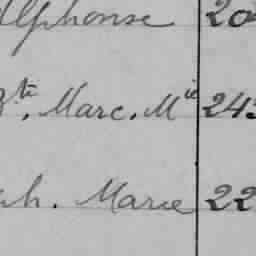 Alphonse 20
Bte. Marc. Mie 243
ph. Marie 22